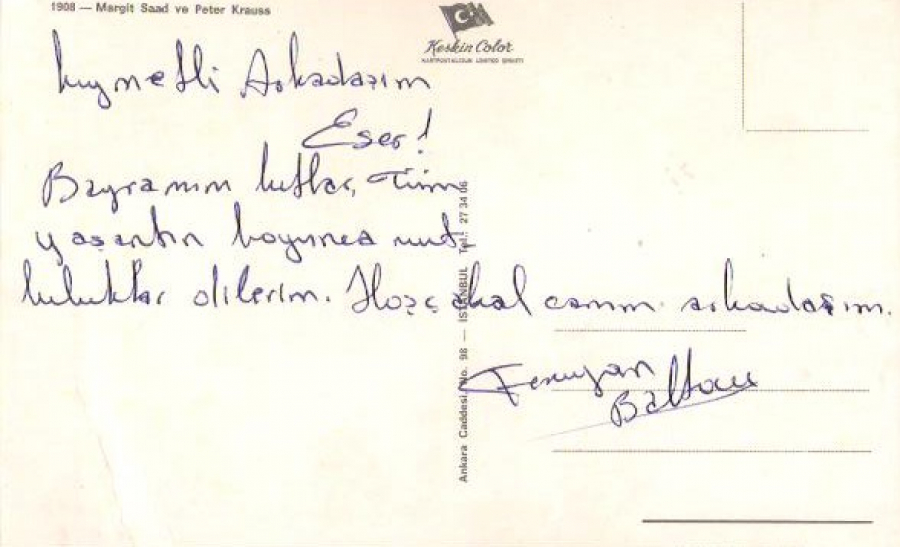 1908 — Margit Saad ve Peter Krauss
Keskin Color
KARTPOSTALCILIK LIMITED ŞİRKETİ
Kıymetli Arkadaşım
Eser!
Bayramını kutlar, Tüm
yaşantın boyunca mut-
luluklar dilerim. Hoşçakal canım arkadaşım.
Baltacı
Ankara Caddesi No. 98 — İSTANBUL Tel.: 27 34 06